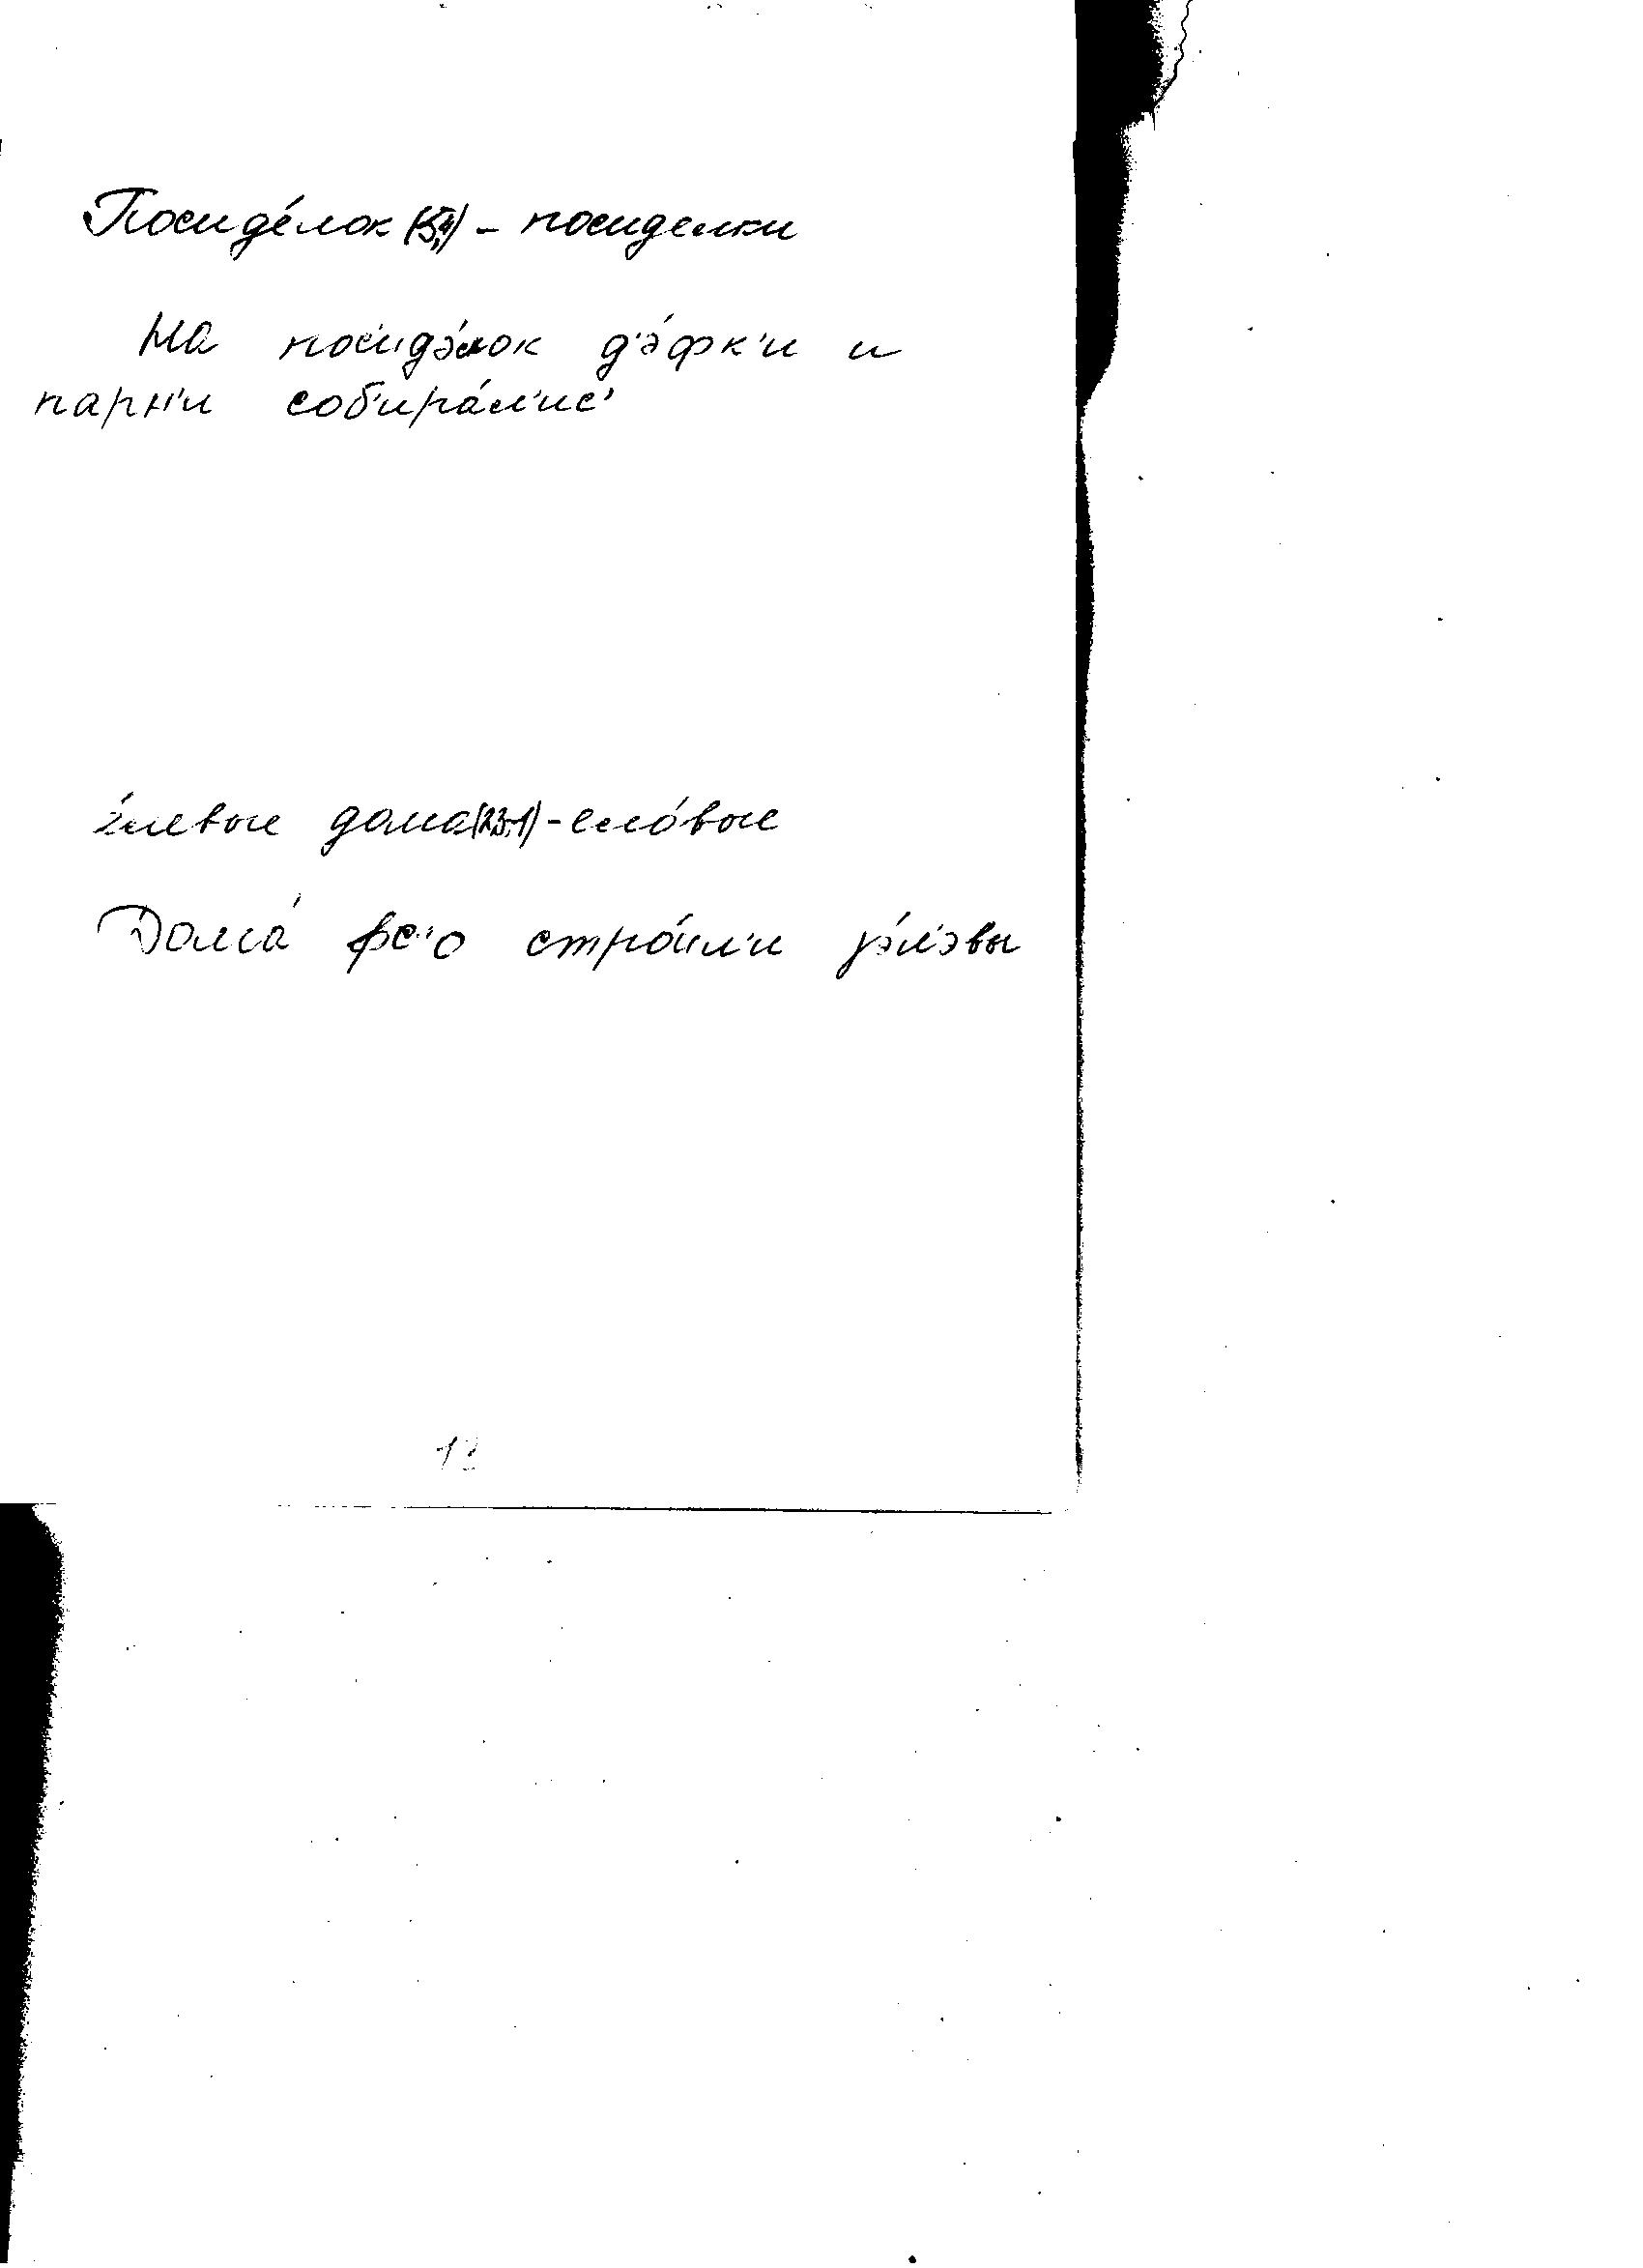 Посиде́лок (5,4) – посиделки
На пос'идэ́лок д'э́фк'и и
парн'и соб'ира́л'ис'
е́левые дома (23,1) – ело́вые
Дома́ фс'о стро́ил'и јэ́л'эвы